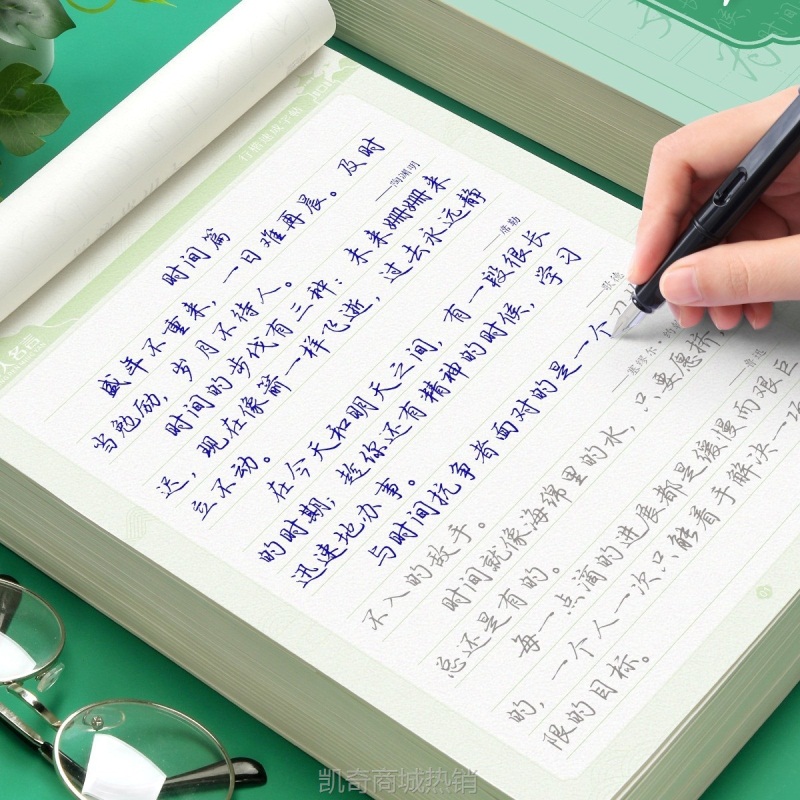 行楷速成字帖
人名言
时间篇
盛年不重来，一日难再晨。及时
当勉励，岁月不待人。
——陶渊明
时间的步伐有三种：未来姗姗来
迟，现在像箭一样飞逝，过去永远静
立不动。
——席勒
在今天和明天之间，有一段很长
的时期；趁你还有精神的时候，学习
迅速地办事。
——歌德
与时间抗争者面对的是一个刀
不入的敌手。
——塞缪尔·约翰
时间就像海绵里的水，只要愿挤
总还是有的。
——鲁迅
每一点滴的进展都是缓慢而艰巨
的，一个人一次只能着手解决一
限的目标。
凯奇商城热销